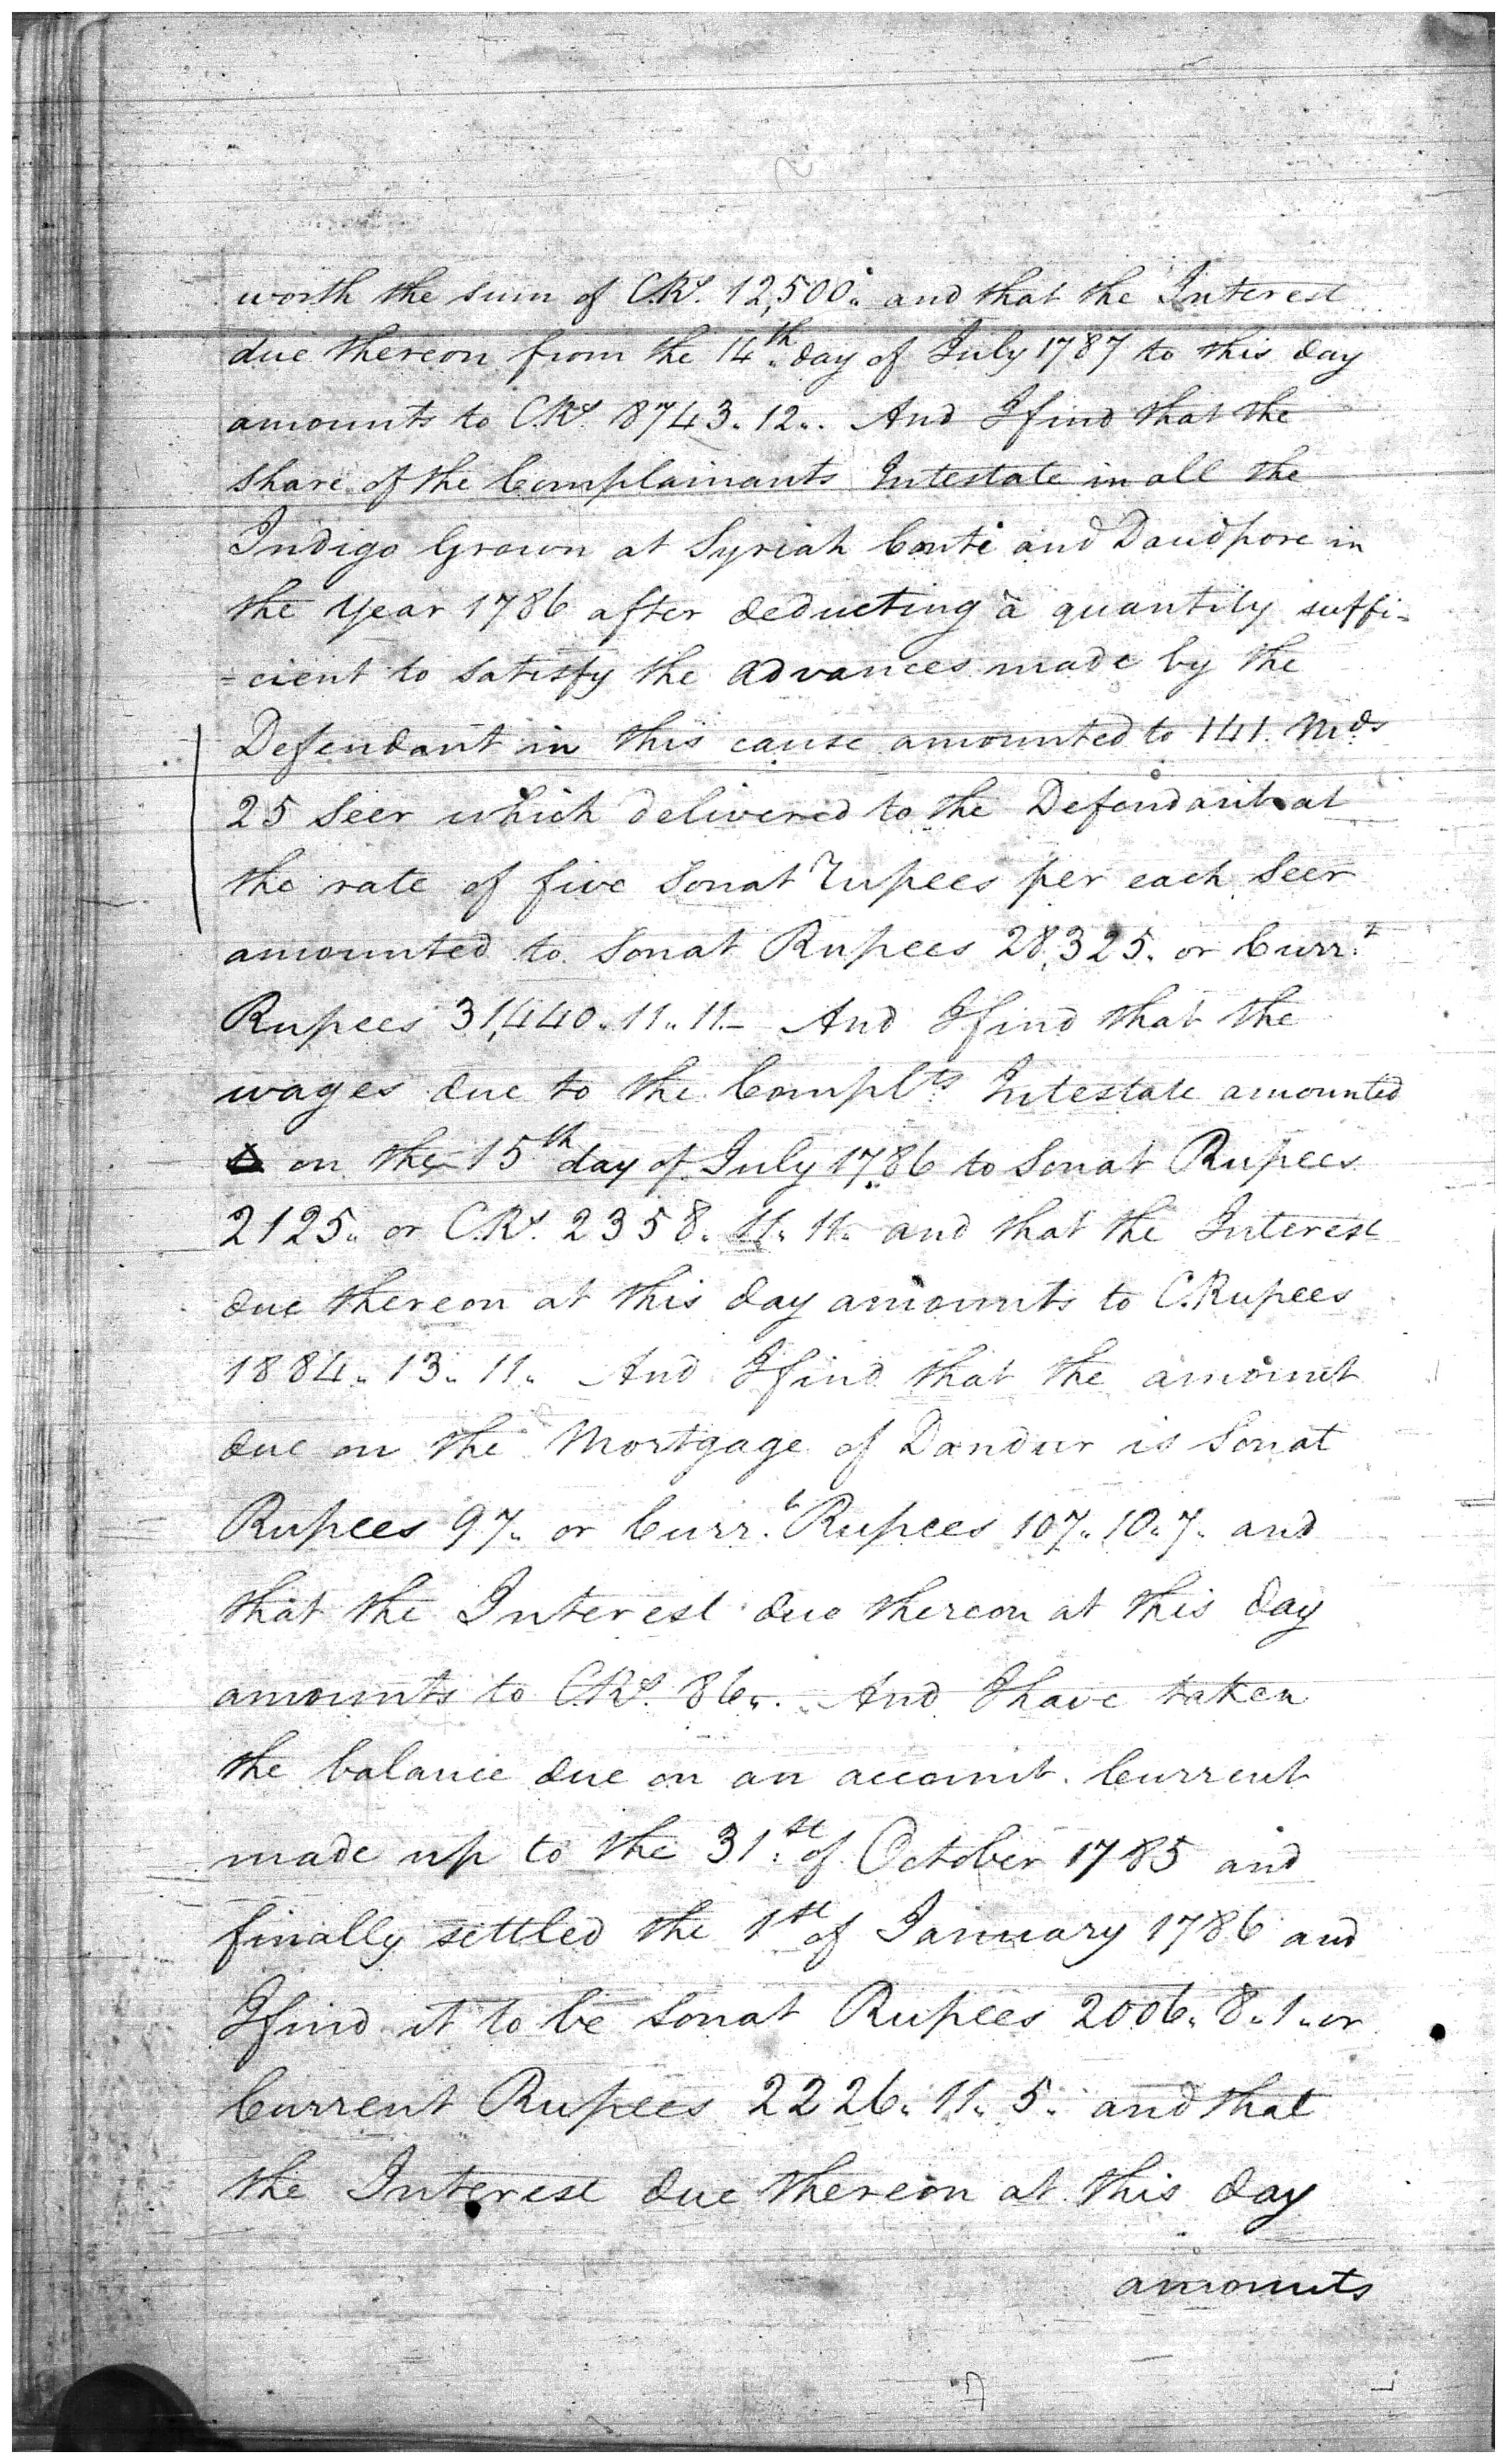 worth the sum of C.Rs. 12,500.. and that the Interest
due thereon from the 14th day of July 1787 to this day
amounts to C.Rs. 8743.. 12... And I find that the
share of the Complainants Intestate in all the
Indigo Grown at Syriah Conti and Daudpore in
the Year 1786 after deducting a quantity suffi-
=cient to satisfy the advances made by the
Defendant in this cause amounted to 141. Mds
25 Seer which delivered to the Defendant at
the rate of five Sonat Rupees per each Seer
amounted to Sonat Rupees 28,325. or Curr.t
Rupees 31,440.. 11.. 11.- And I find that the
wages due to the Complts Intestate amounted
on the 15th day of July 1786 to Sonat Rupees
2125.. or C.Rs. 2358.. 11.. 11.. and that the Interest
due thereon at this day amounts to C.Rupees
1884.. 13.. 11.. And I find that the amount
due on the Mortgage of Dandur is Sonat
Rupees 97.. or Curr.t Rupees 107.. 10.. 7.. and
that the Interest due thereon at this day
amounts to C.Rs. 86... And I have taken
the balance due on an account Current
made up to the 31st of October 1785 and
finally settled the 1st of January 1786 and
I find it to be Sonat Rupees 2006.. 8.. 1.. or
Current Rupees 2226.. 11.. 5.. and that
the Interest due thereon at this day
amounts